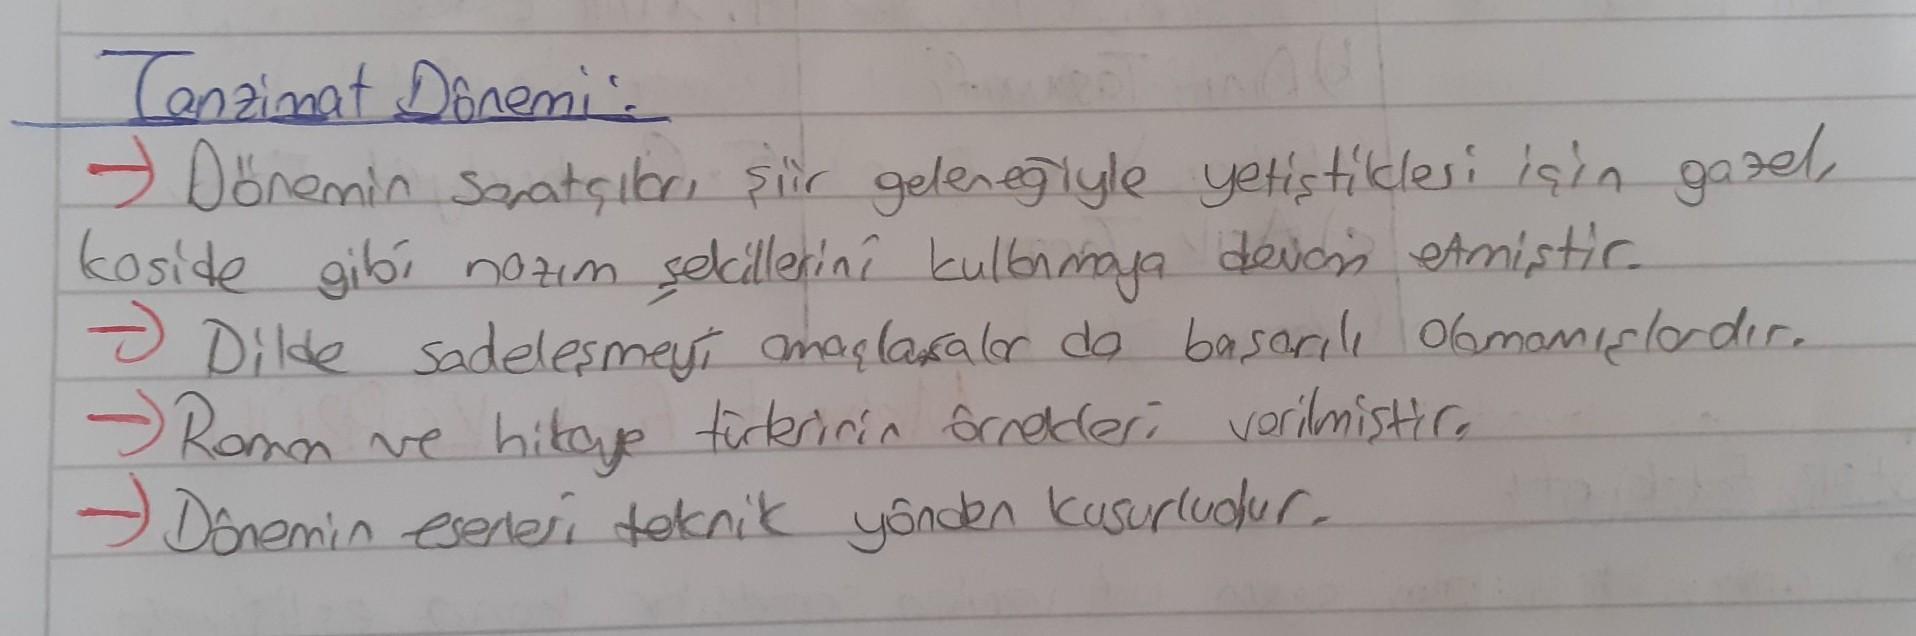 Tanzimat Dönemi:
→ Dönemin sanatçıları, şiir geleneğiyle yetiştikleri için gazel,
kaside gibi nazım şekillerini kullanmaya devam etmiştir.
→ Dilde sadeleşmeyi amaçlasalar da başarılı olamamışlardır.
→ Roman ve hikaye türlerinin örnekleri verilmiştir.
→ Dönemin eserleri teknik yönden kusurludur.